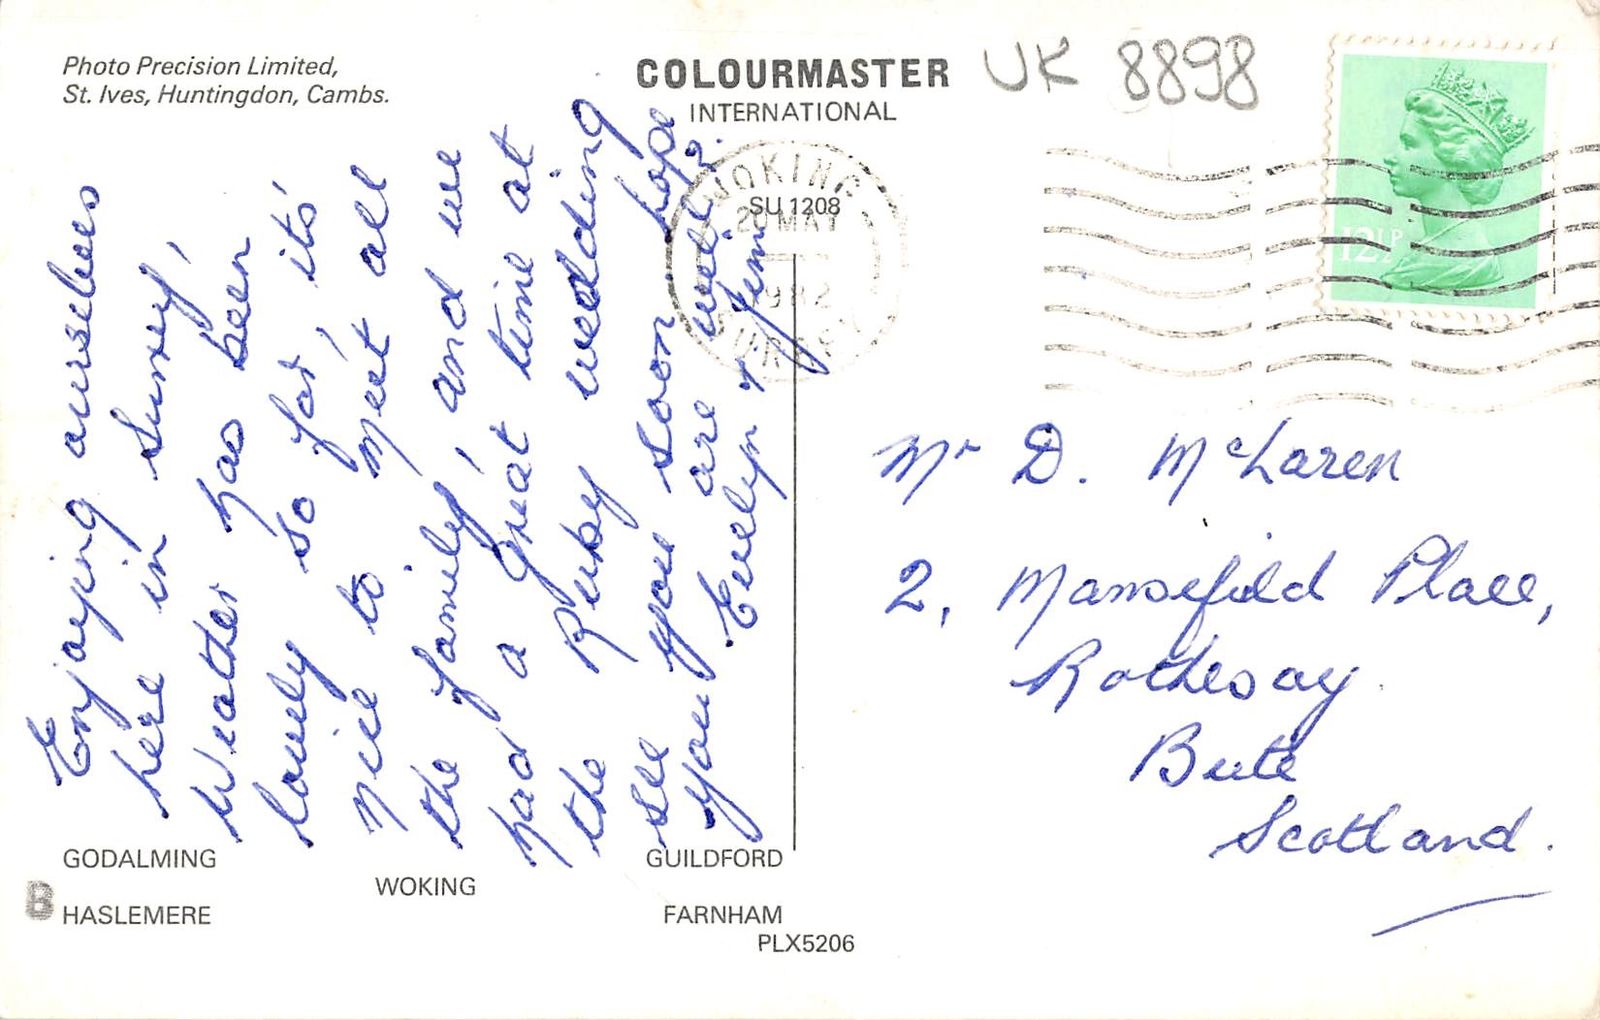 Photo Precision Limited,
St. Ives, Huntingdon, Cambs.
COLOURMASTER
INTERNATIONAL
UK 8898
SU 1208
WOKING
20 MAY
1982
SURREY
12½P
Enjoying ourselves
here in Surrey,
Weather has been
lovely so far, its
nice to meet all
the family, and we
had a great time at
the Ruby wedding
see you soon hope
you are well.
Evelyn & Jim
Mr D. McLaren
2, Mansefield Place,
Rothesay.
Bute
Scotland.
GODALMING
WOKING
GUILDFORD
B
HASLEMERE
FARNHAM
PLX5206